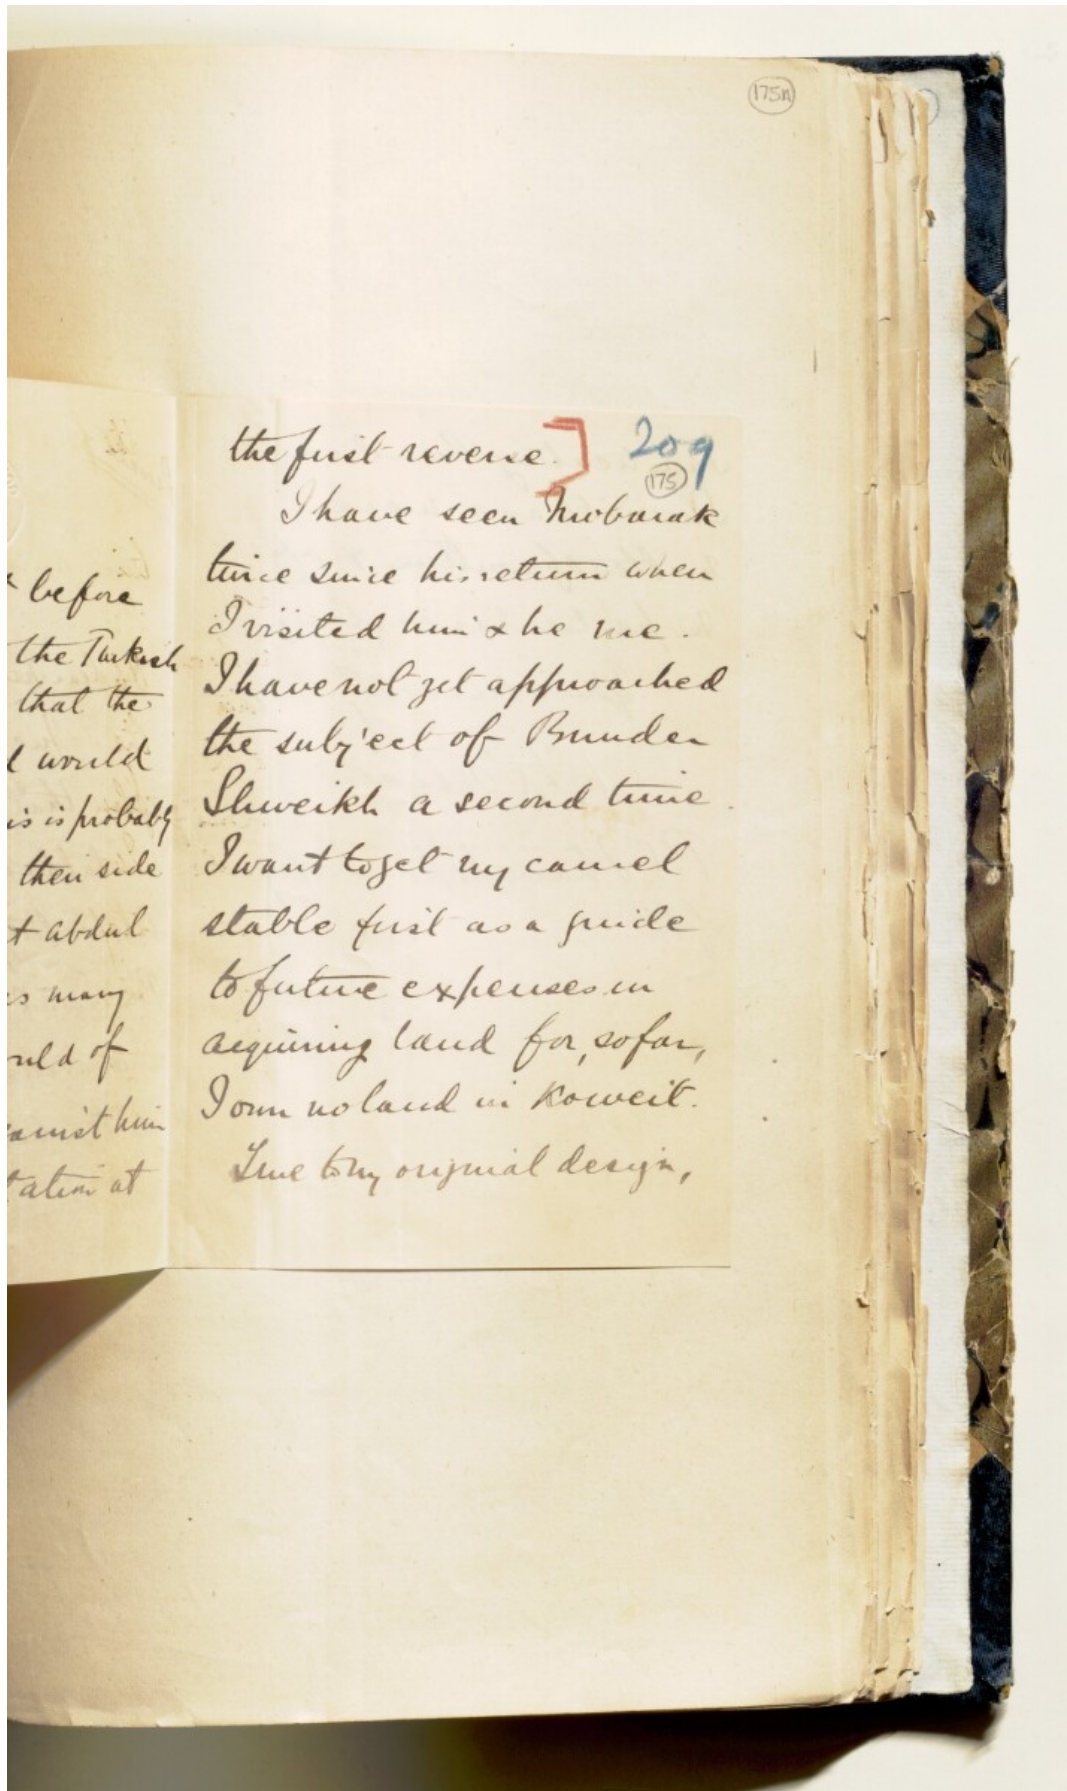 175A
before
the Turkish
that the
would
is is probably
their side
t abdul
s many
uld of
ainst him
tation at
the first reverse. ] 209
175
I have seen Mubarak
twice since his return when
I visited him & he me.
I have not yet approached
the subject of Bunder
Shweikh a second time.
I want to get my camel
stable first as a guide
to future expenses in
acquiring land for, so far,
I own no land in Koweit.
True to my original design,